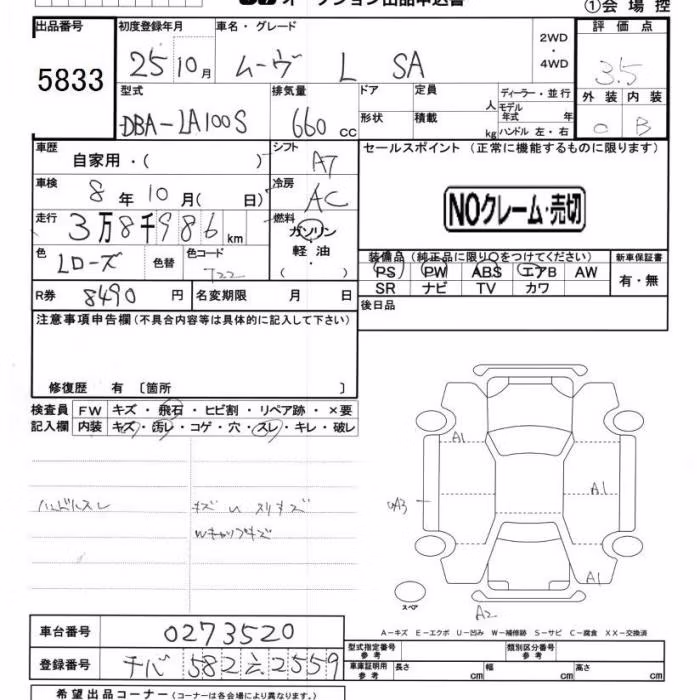 オークション出品申込書
①会場控
出品番号 5833
初度登録年月 25 10月
車名・グレード ムーヴ L SA
2WD・4WD
評価点 3.5
外装 内装
C B
型式 DBA-LA100S
排気量 660 cc
ドア
形状
定員 人
積載 kg
ディーラー・並行
モデル年式 年
ハンドル 左・右
車歴 自家用・( )
シフト AT
セールスポイント（正常に機能するものに限ります）
車検 8年10月( 日)
冷房 AC
NOクレーム・売切
走行 3万8千986km
燃料 ガソリン 軽油・( )
色 Lローズ 色替
色コード T22
装備品（純正品に限り○をつけてください）
PS PW ABS エアB AW
SR ナビ TV カワ
新車保証書 有・無
R券 8490 円
名変期限 月 日
後日品
注意事項申告欄（不具合内容等は具体的に記入して下さい）
修復歴 有〔箇所 〕
検査員記入欄
FW キズ・飛石・ヒビ割・リペア跡・×要
内装 キズ・汚レ・コゲ・穴・スレ・キレ・破レ
ハンドルスレ
キズ スリキズ
Wキャップキズ
A1
A1
UA3
A1
A2
スペア
A－キズ E－エクボ U－凹み W－補修跡 S－サビ C－腐食 XX－交換済
車台番号 0273520
登録番号 チバ 582 2559
型式指定番号 参考
類別区分番号 参考
車庫証明用 参考 長さ cm 幅 cm 高さ cm
希望出品コーナー（コーナーは各会場により異なります。）